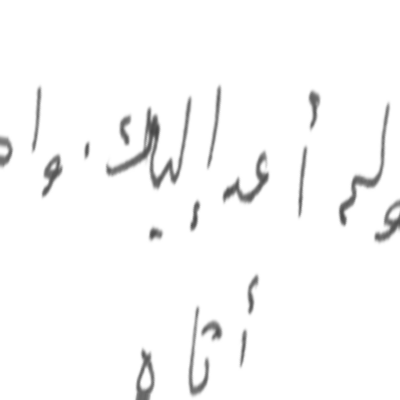 ولم أعد إليك. وا
أتاه